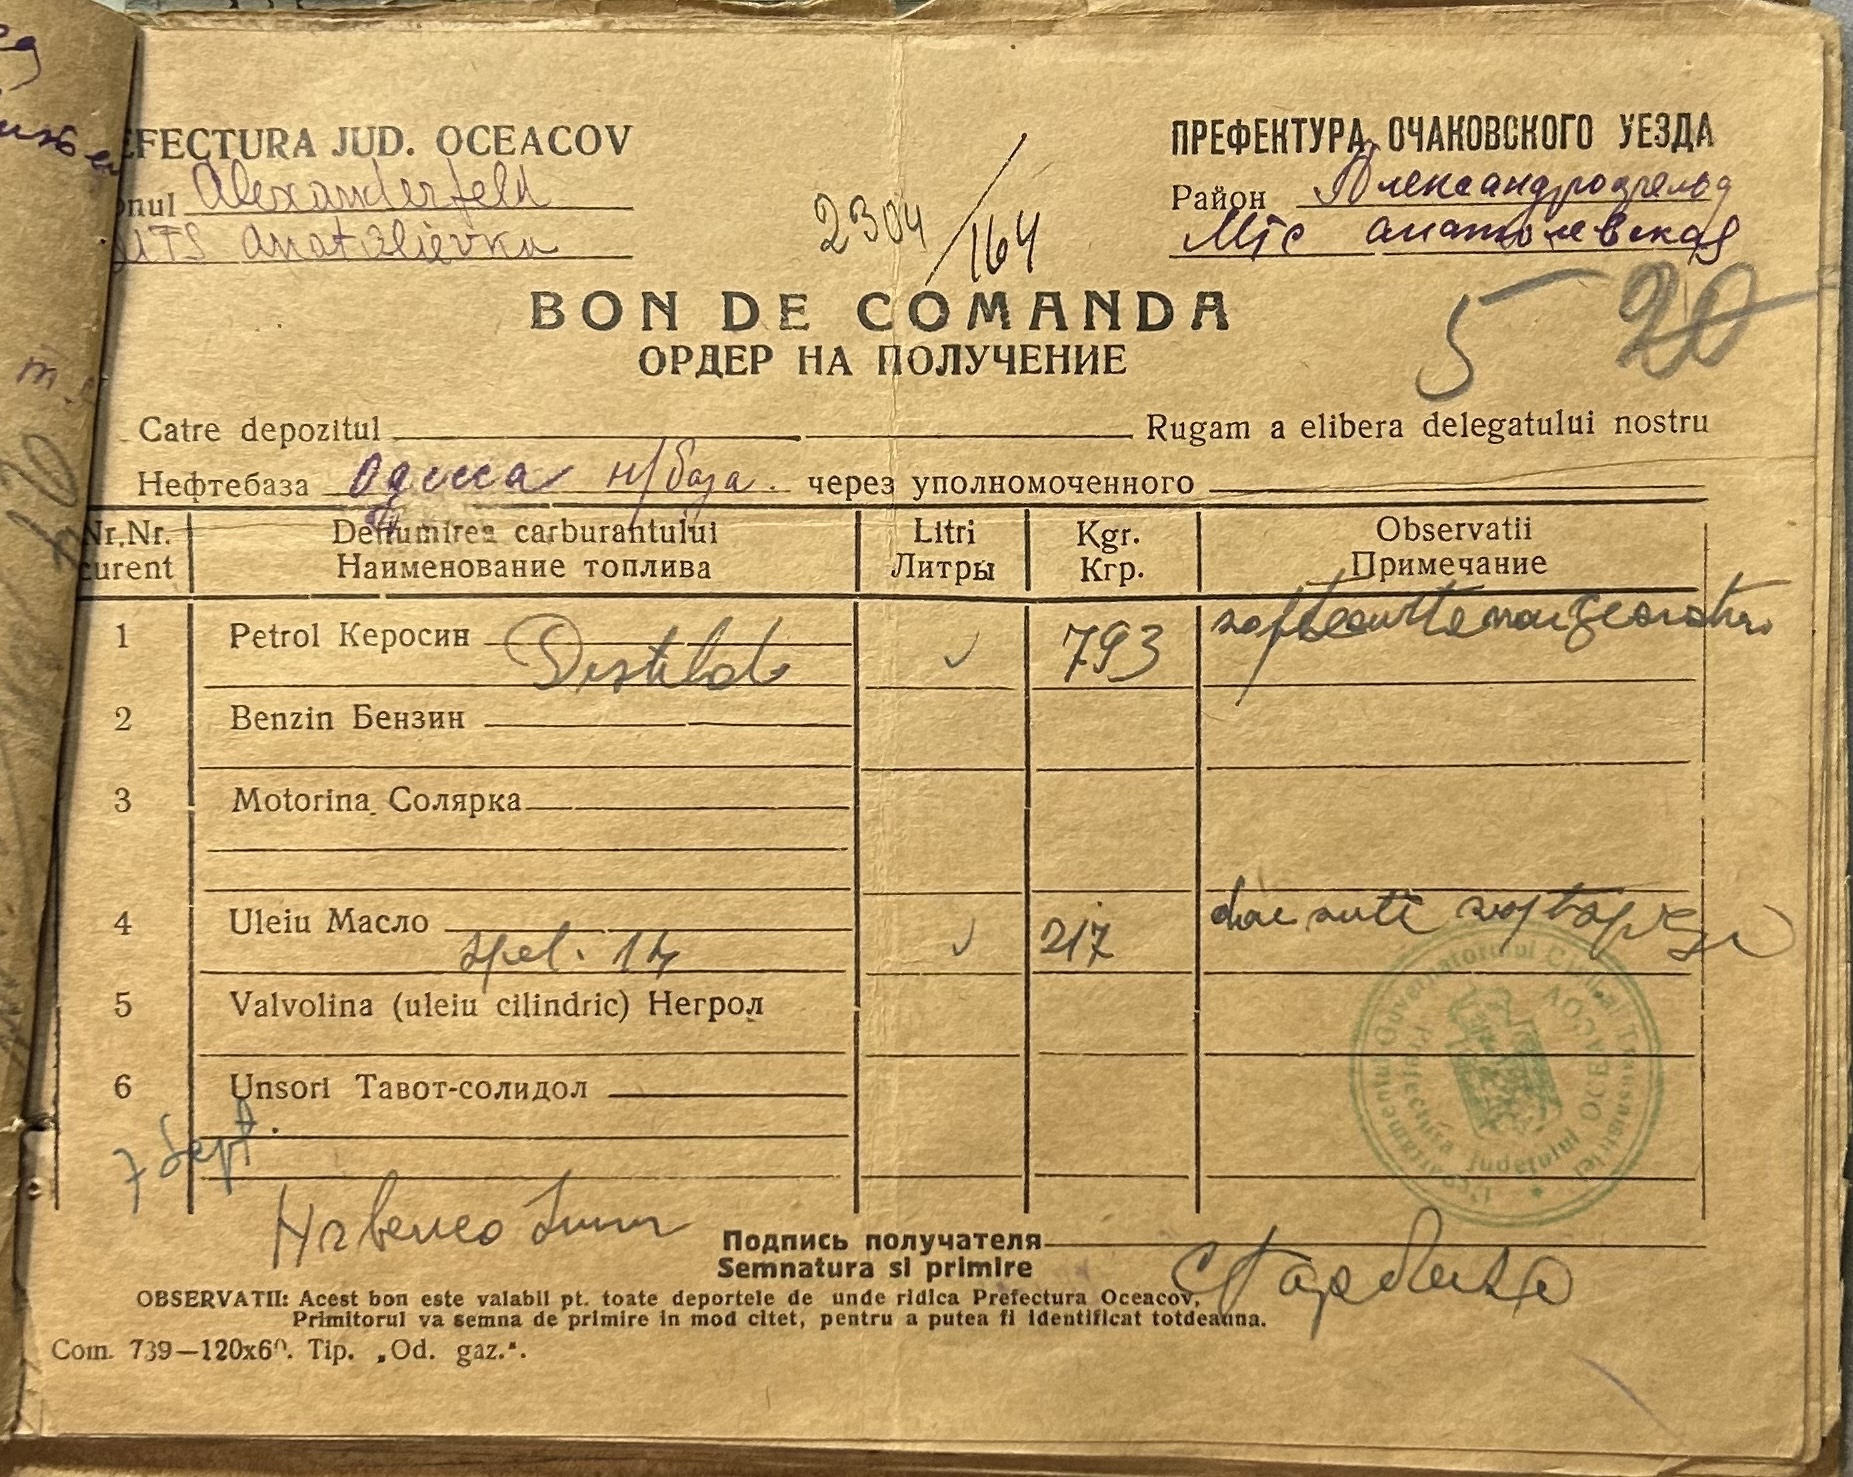 EFECTURA JUD. OCEACOV
onul Alexanderfeld
MTS Anatolievka
2304/164
ПРЕФЕКТУРА ОЧАКОВСКОГО УЕЗДА
Район Александрофельд
Мтс анатолевская
BON DE COMANDA
5 20
ОРДЕР НА ПОЛУЧЕНИЕ
Catre depozitul Rugam a elibera delegatului nostru
Нефтебаза Одесса н/база. через уполномоченного
Nr.Nr. Denumirea carburantului Litri Kgr. Observatii
curent Наименование топлива Литры Кгр. Примечание
1 Petrol Керосин Distilat 793
2 Benzin Бензин
3 Motorina Солярка
4 Uleiu Масло 217 doi sute
5 Valvolina (uleiu cilindric) Негрол
6 Unsori Тавот-солидол
7 Sept.
Guvernatorul Civil al Transnistriei
Prefectura Județului OCEACOV
Подпись получателя
Semnatura si primire
OBSERVATII: Acest bon este valabil pt. toate deportele de unde ridica Prefectura Oceacov,
Primitorul va semna de primire in mod citet, pentru a putea fi identificat totdeauna.
Com. 739—120x60. Tip. „Od. gaz.".